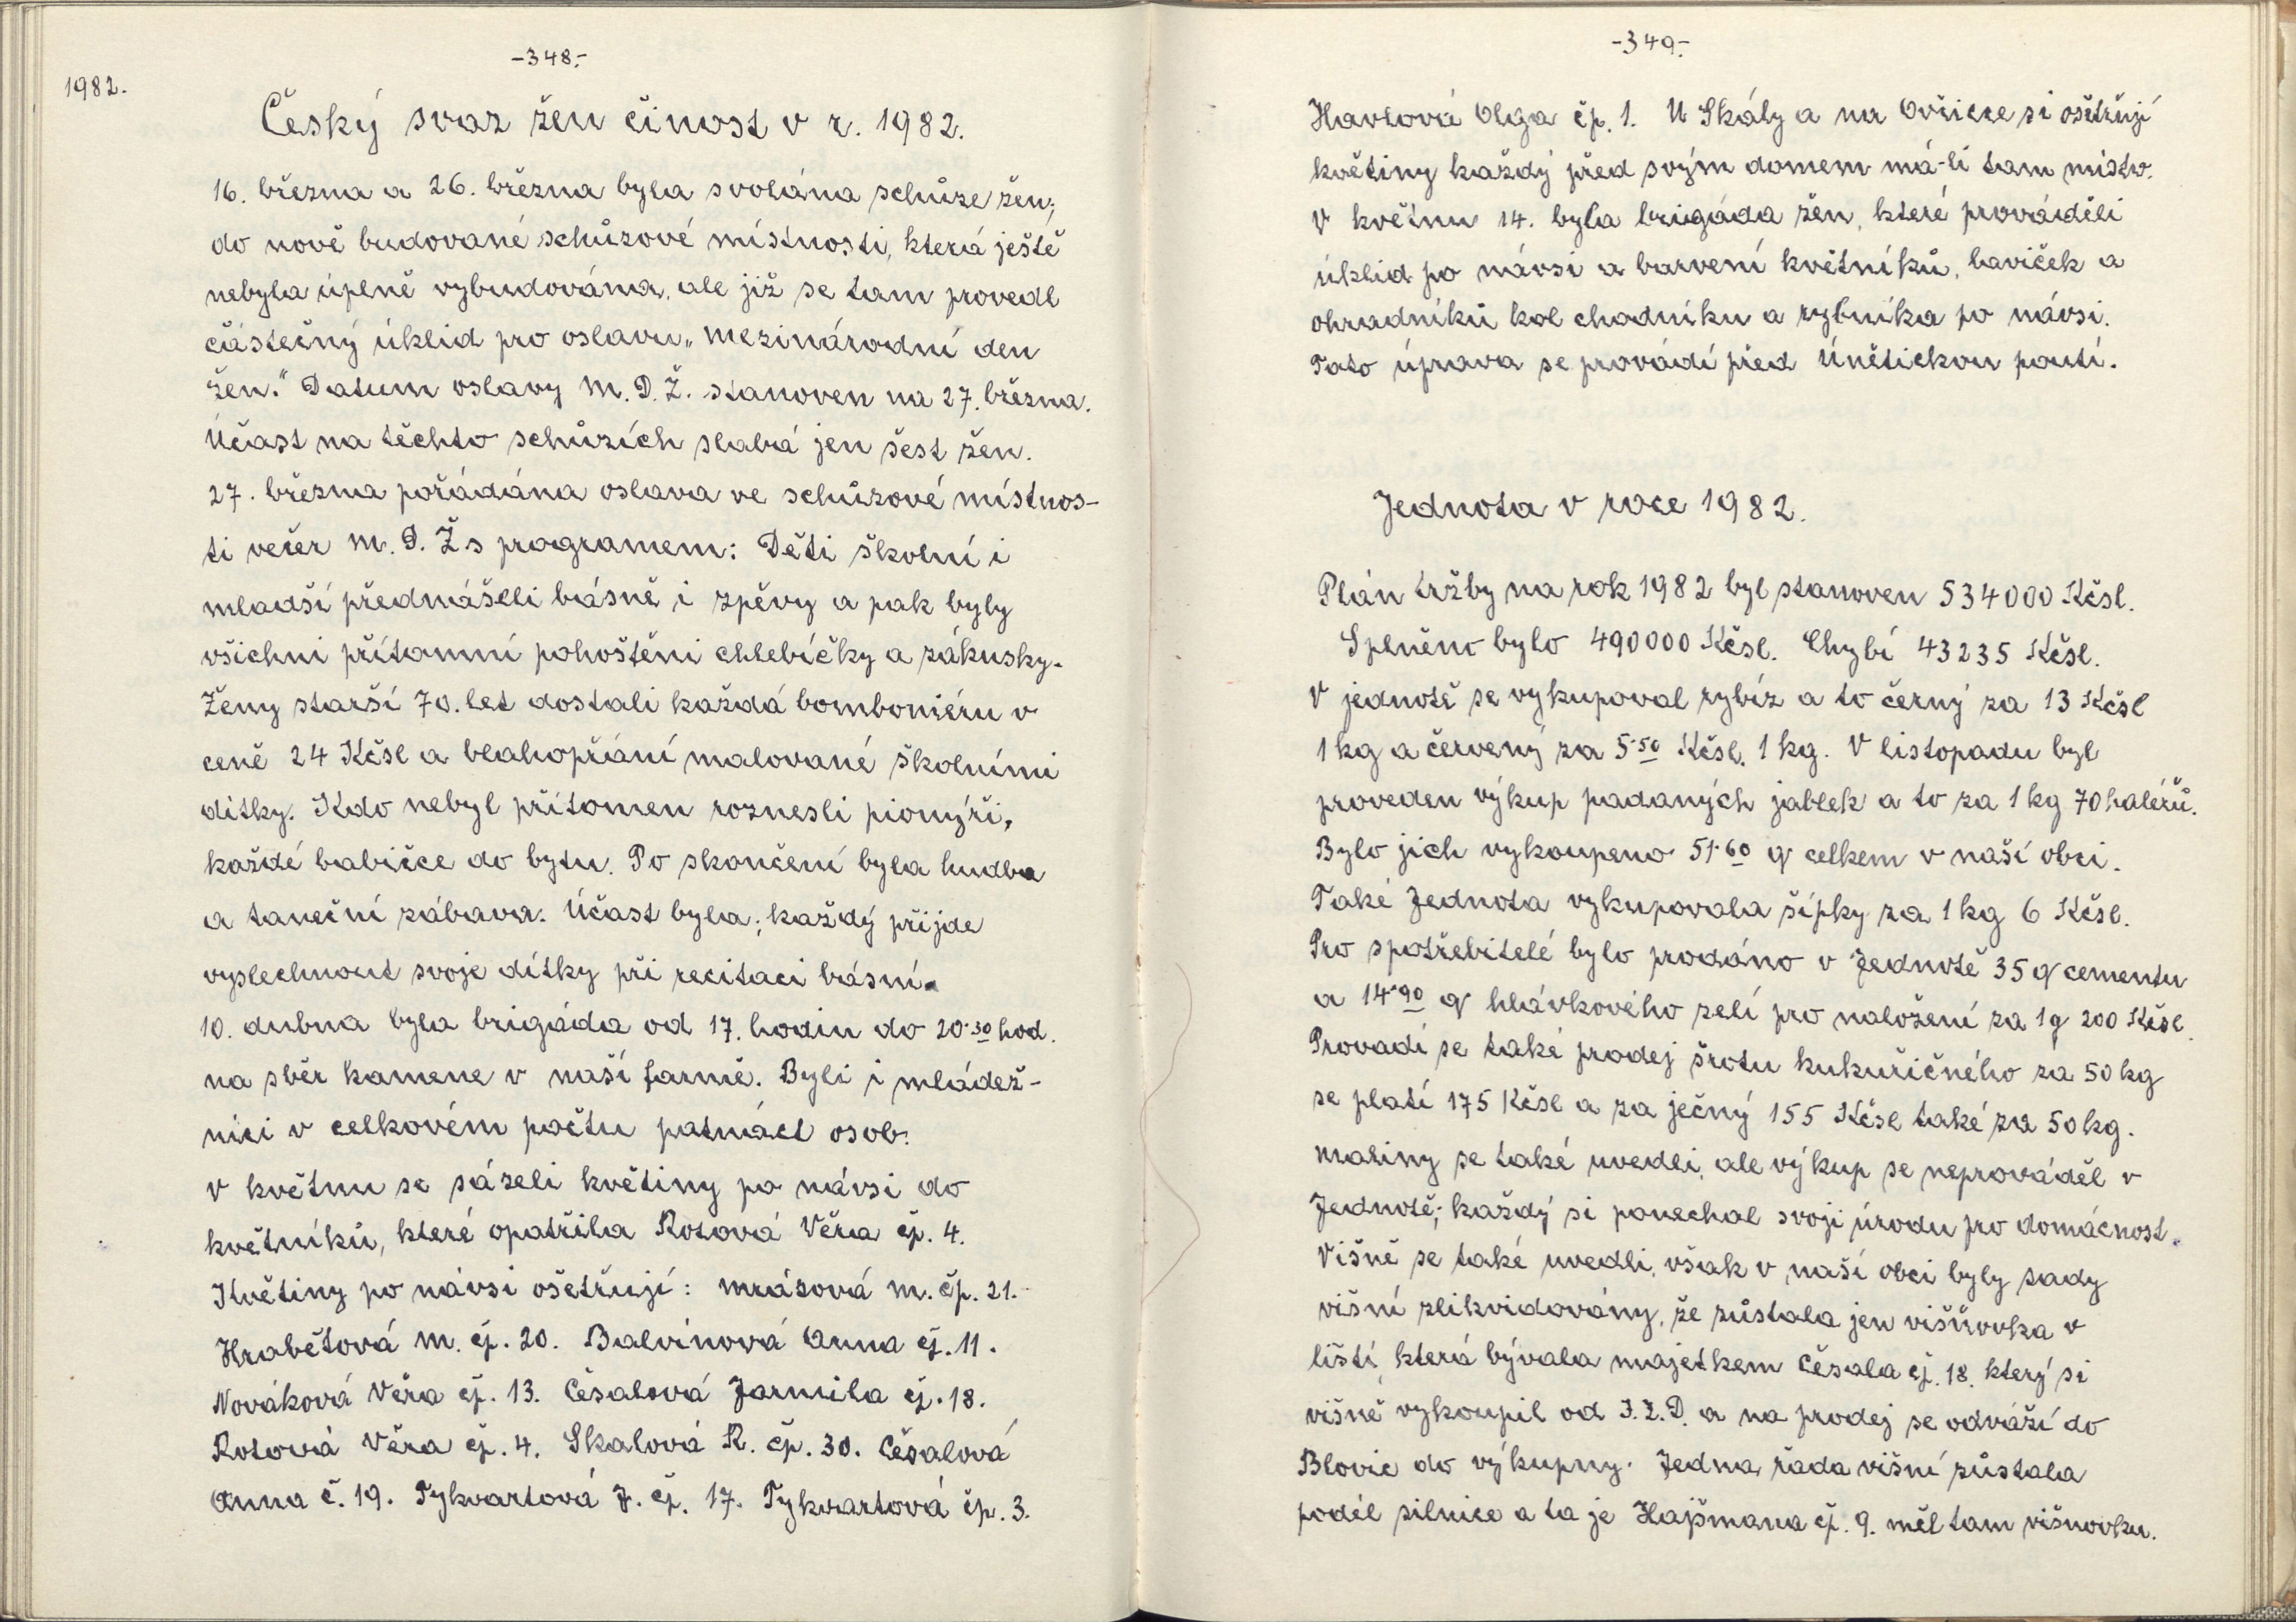 -348.-
1982.
Český svaz žen činost v r. 1982.
16. března a 26. března byla svolána schůze žen;
do nově budované schůzové místnosti, která ještě
nebyla úplně vybudována, ale již se tam provedl
částečný úklid pro oslavu „Mezinárodní den
žen." Datum oslavy M.D.Ž. stanoven na 27. března.
Účast na těchto schůzích slabá jen šest žen.
27. března pořádána oslava ve schůzové místnos-
ti večer M.D.Ž s programem: Děti školní i
mladší přednášeli básně i zpěvy a pak byly
všichni přítomní pohoštěni chlebíčky a zákusky.
Ženy starší 70. let dostali každá bomboniéru v
ceně 24 Kčsl a blahopřání malované školními
dítky. Kdo nebyl přítomen roznesli pionýři,
každé babičce do bytu. Po skončení byla hudba
a taneční zábava. Účast byla; každý přijde
vyslechnout svoje dítky při recitaci básní.
10. dubna byla brigáda od 17. hodin do 20.30 hod.
na sběr kamene v naší farmě. Byli i mládež-
níci v celkovém počtu patnáct osob.
V květnu se sázeli květiny po návsi do
květníků, které opatřila Rotová Věra čp. 4.
Květiny po návsi ošetřují: Mrázová M. čp. 21.
Hrabětová M. čp. 20. Balvínová Anna čp. 11.
Nováková Věra čp. 13. Česalová Jarmila čp. 18.
Rotová Věra čp. 4. Skalová R. čp. 30. Češalová
Anna č. 19. Tykvartová J. čp. 17. Tykvartová čp. 3.
-349.-
Havlová Olga čp. 1. U Skály a na Ovčičce si ošetřují
květiny každý před svým domem má-li tam místo.
V květnu 14. byla brigáda žen, které prováděli
úklid po návsi a barvení květníků, laviček a
ohradníků kol chodníku a rybníka po návsi.
Tato úprava se provádí před Únětickou poutí.
Jednota v roce 1982.
Plán tržby na rok 1982 byl stanoven 534000 Kčsl.
Splněno bylo 490000 Kčsl. Chybí 43235 Kčsl.
V jednotě se vykupoval rybíz a to černý za 13 Kčsl
1 kg a červený za 5.50 Kčsl. 1 kg. V listopadu byl
proveden výkup padaných jablek a to za 1 kg 70 haléřů.
Bylo jich vykoupeno 51.60 q celkem v naší obci.
Také Jednota vykupovala šípky za 1 kg 6 Kčsl.
Pro spotřebitelé bylo prodáno v Jednotě 35 q cementu
a 14.90 q hlávkového zelí pro naložení za 1q 200 Kčsl.
Provadí se také prodej šrotu kukuřičného za 50 kg
se platí 175 Kčsl a za ječný 155 Kčsl také za 50 kg.
Maliny se také uvedli, ale výkup se neprováděl v
Jednotě; každý si ponechal svoji úrodu pro domácnost.
Višně se také uvedli, však v naší obci byly sady
višní zlikvidovány, že zůstala jen višňovka v
lištì, která bývala majetkem Česala čp. 18. který si
višně vykoupil od J.Z.D. a na prodej se odváží do
Blovic do výkupny. Jedna řada višní zůstala
podél silnice a ta je Hajšmana čp. 9. měl tam višnovku.